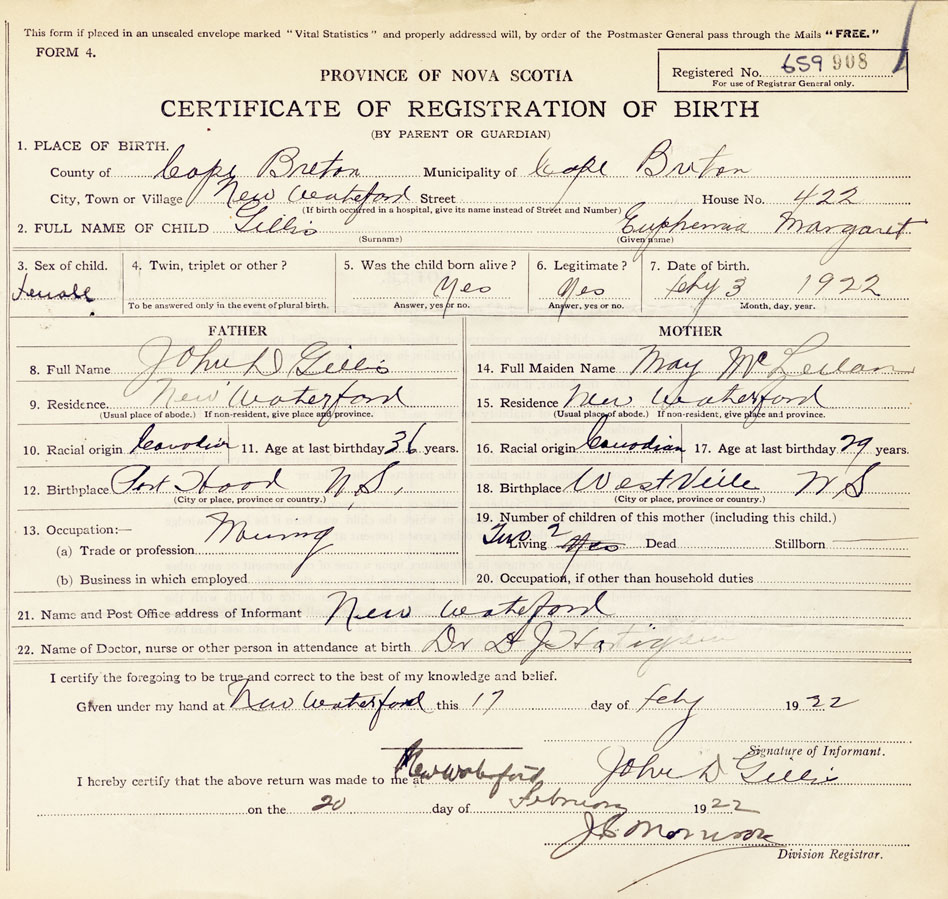 This form if placed in an unsealed envelope marked "Vital Statistics" and properly addressed will, by order of the Postmaster General pass through the Mails "FREE."
FORM 4.
Registered No. 659 908
For use of Registrar General only.
PROVINCE OF NOVA SCOTIA
CERTIFICATE OF REGISTRATION OF BIRTH
(BY PARENT OR GUARDIAN)
1. PLACE OF BIRTH.
County of Cape Breton Municipality of Cape Breton
City, Town or Village New Waterford Street House No. 422
(If birth occurred in a hospital, give its name instead of Street and Number)
2. FULL NAME OF CHILD Gillis Euphemia Margaret
(Surname) (Given name)
3. Sex of child. 4. Twin, triplet or other? 5. Was the child born alive? 6. Legitimate? 7. Date of birth.
Female Yes Yes Feby 3 1922
To be answered only in the event of plural birth. Answer, yes or no. Answer, yes or no. Month, day, year.
FATHER
8. Full Name John D Gillis
9. Residence New Waterford
(Usual place of abode.) If non-resident, give place and province.
10. Racial origin Canadian 11. Age at last birthday 36 years.
12. Birthplace Port Hood N.S.
(City or place, province or country.)
13. Occupation:—
(a) Trade or profession Mining
(b) Business in which employed
MOTHER
14. Full Maiden Name May McLellan
15. Residence New Waterford
(Usual place of abode.) If non-resident, give place and province.
16. Racial origin Canadian 17. Age at last birthday 29 years.
18. Birthplace WestVille N S
(City or place, province or country.)
19. Number of children of this mother (including this child.)
Two Living 2 Yes Dead Stillborn
20. Occupation, if other than household duties
21. Name and Post Office address of Informant New Wateford
22. Name of Doctor, nurse or other person in attendance at birth Dr D J Hartigan
I certify the foregoing to be true and correct to the best of my knowledge and belief.
Given under my hand at New Waterford this 17 day of Feby 1922
Signature of Informant.
John D Gillis
I hereby certify that the above return was made to me at New Waterford
on the 20 day of February 1922
Morrison
Division Registrar.